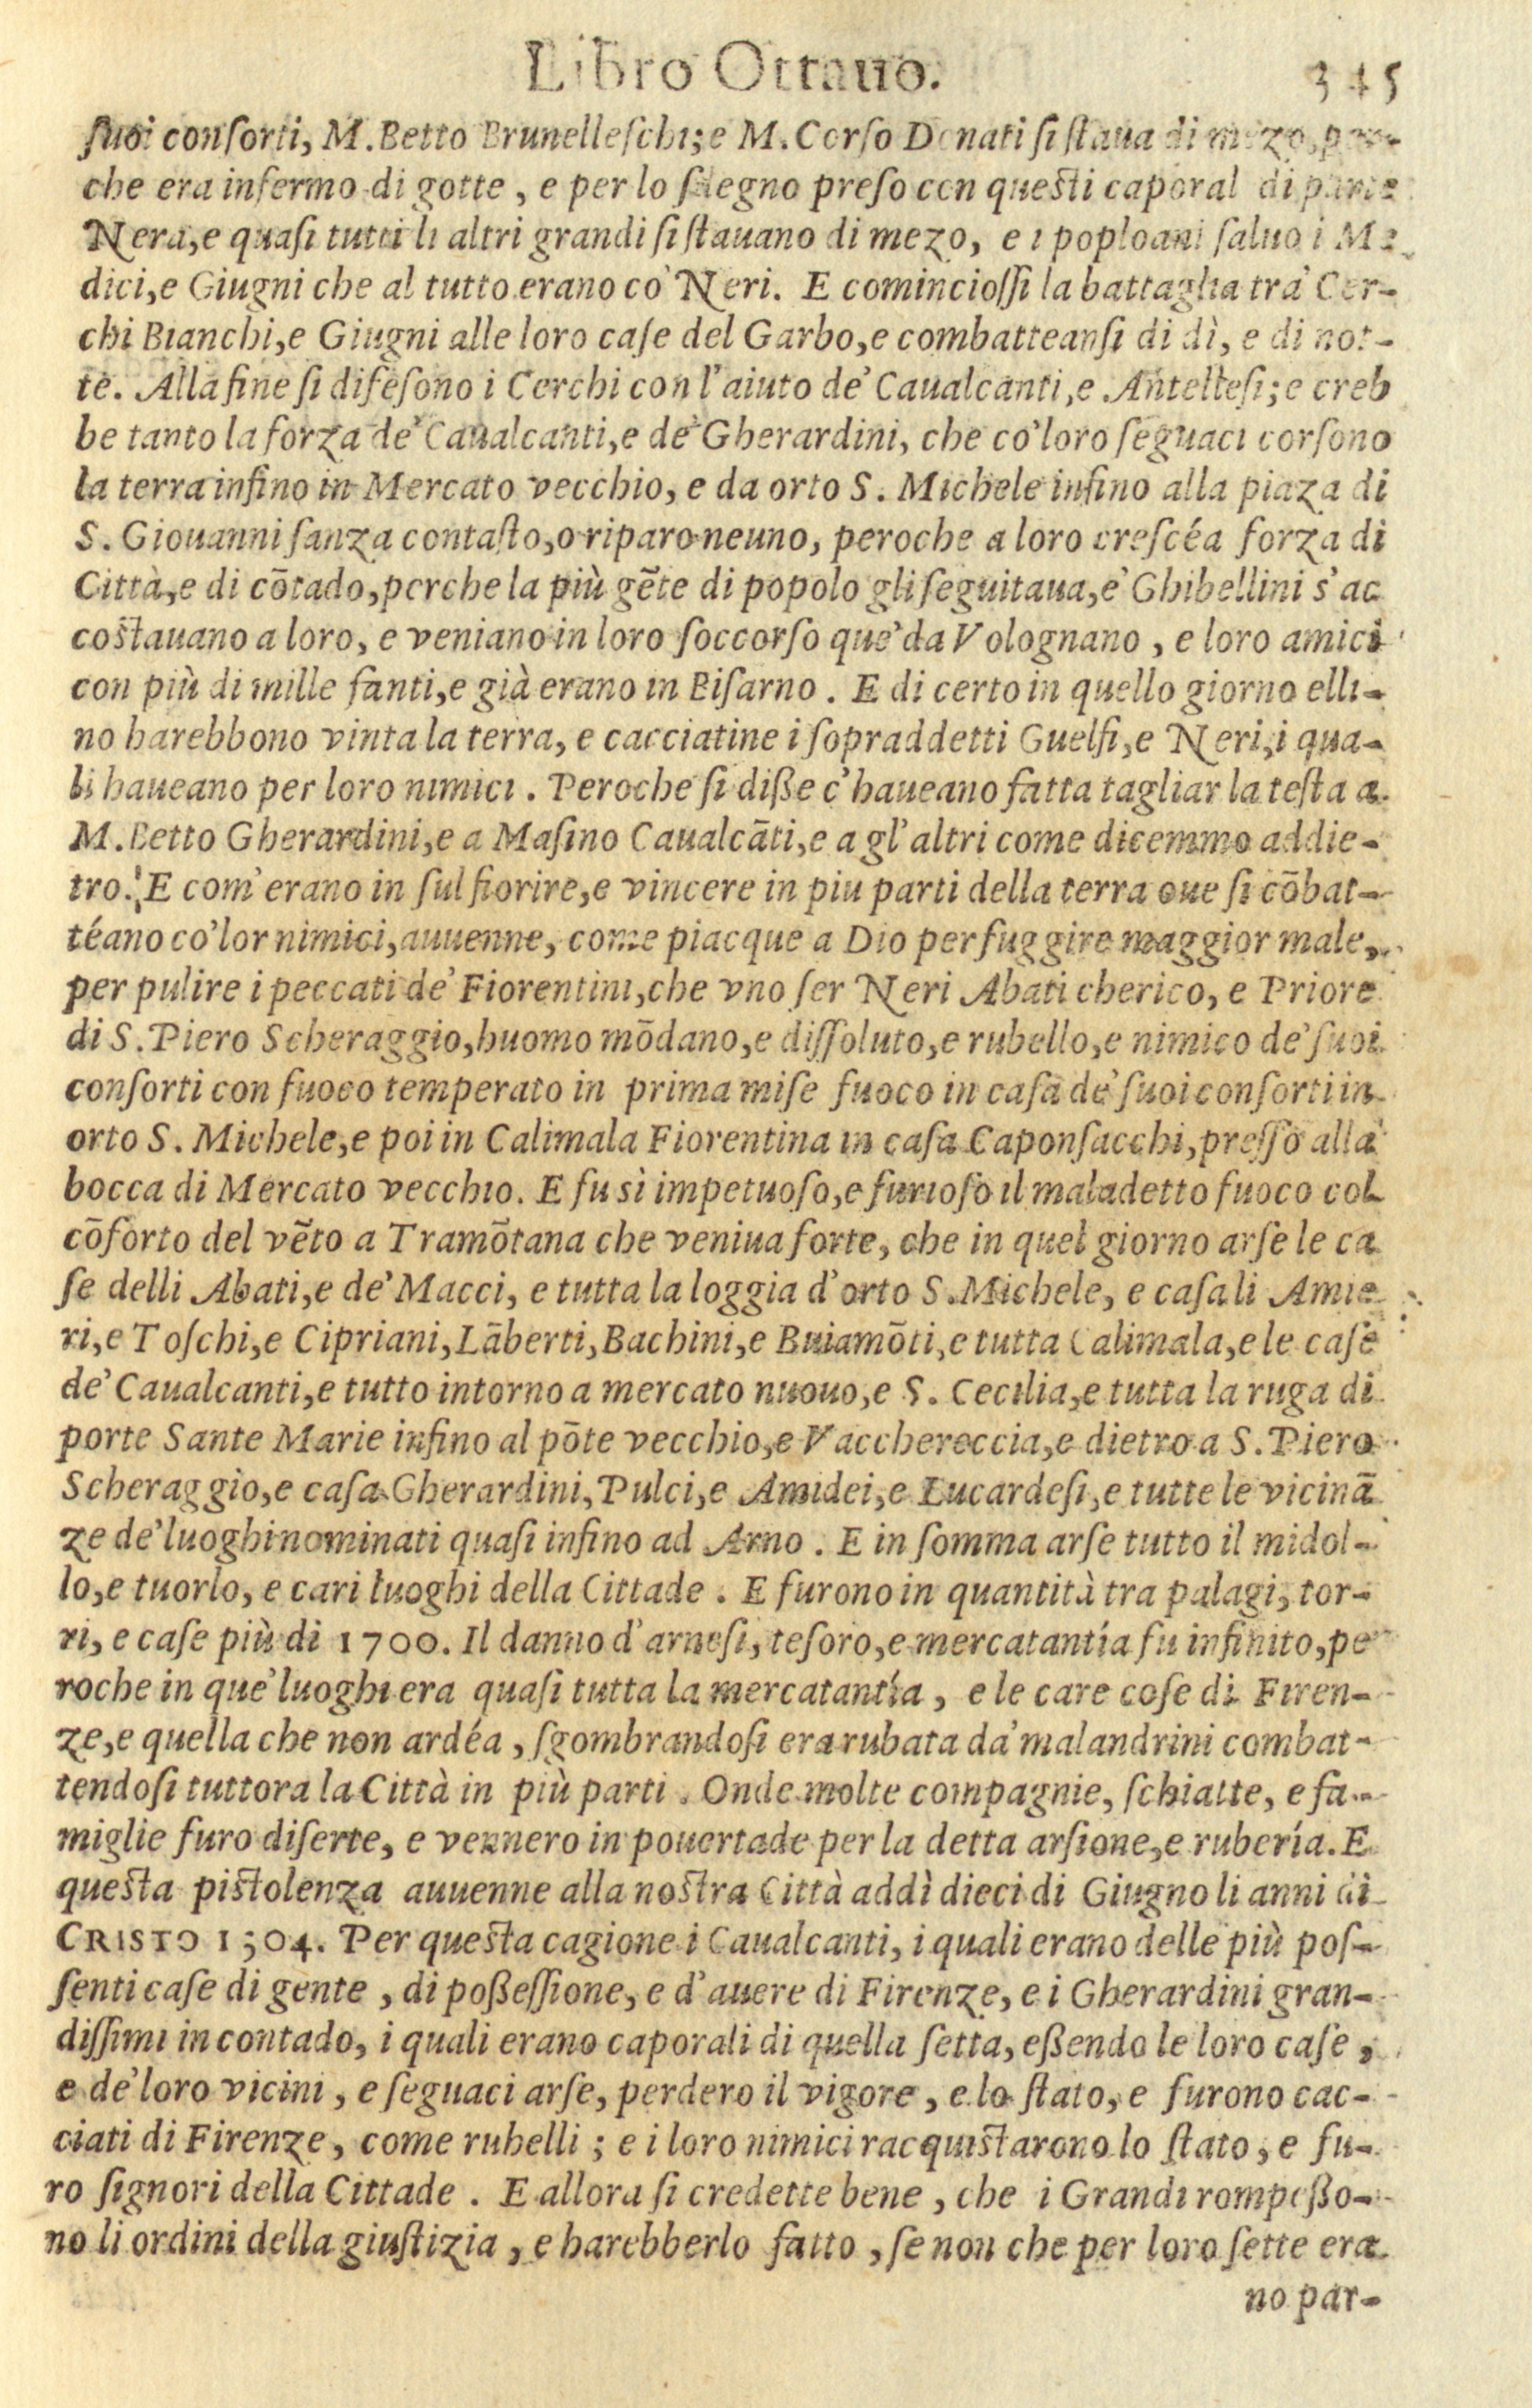 Libro Ottauo. 345
ſuoi conſorti, M. Betto Brunelleſchi; e M. Corſo Donati ſi ſtaua di mezo, per-
che era infermo di gotte, e per lo ſdegno preſo con queſti caporal di parte
Nera, e quaſi tutti li altri grandi ſi ſtauano di mezo, e i poploani ſaluo i Me
dici, e Giugni che al tutto erano co' Neri. E comincioſſi la battaglia tra' Cer-
chi Bianchi, e Giugni alle loro caſe del Garbo, e combatteanſi di dì, e di not-
te. Alla fine ſi difeſono i Cerchi con l'aiuto de' Caualcanti, e Antelleſi; e creb
be tanto la forza de' Caualcanti, e de' Gherardini, che co' loro ſeguaci corſono
la terra infino in Mercato vecchio, e da orto S. Michele infino alla piaza di
S. Giouanni ſanza contaſto, o riparo neuno, peroche a loro creſcéa forza di
Città, e di cōtado, perche la più gēte di popolo gli ſeguitaua, e' Ghibellini s'ac
coſtauano a loro, e veniano in loro ſoccorſo que' da Volognano, e loro amici
con più di mille fanti, e già erano in Biſarno. E di certo in quello giorno elli-
no harebbono vinta la terra, e cacciatine i ſopraddetti Guelfi, e Neri, i qua-
li haueano per loro nimici. Peroche ſi diße c'haueano fatta tagliar la teſta a
M. Betto Gherardini, e a Maſino Caualcāti, e a gl'altri come dicemmo addie-
tro. E com'erano in ſul fiorire, e vincere in piu parti della terra oue ſi cōbat-
téano co' lor nimici, auuenne, come piacque a Dio per fuggire maggior male,
per pulire i peccati de' Fiorentini, che vno ſer Neri Abati cherico, e Priore
di S. Piero Scheraggio, huomo mōdano, e diſſoluto, e rubello, e nimico de' ſuoi
conſorti con fuoco temperato in prima miſe fuoco in caſa de' ſuoi conſorti in
orto S. Michele, e poi in Calimala Fiorentina in caſa Caponſacchi, preſſo alla
bocca di Mercato vecchio. E fu sì impetuoſo, e furioſo il maladetto fuoco col
cōforto del vēto a Tramōtana che veniua forte, che in quel giorno arſe le ca
ſe delli Abati, e de' Macci, e tutta la loggia d'orto S. Michele, e caſa li Amie
ri, e Toſchi, e Cipriani, Lāberti, Bachini, e Buiamōti, e tutta Calimala, e le caſe
de' Caualcanti, e tutto intorno a mercato nuouo, e S. Cecilia, e tutta la ruga di
porte Sante Marie infino al pōte vecchio, e Vacchereccia, e dietro a S. Piero
Scheraggio, e caſa Gherardini, Pulci, e Amidei, e Lucardeſi, e tutte le vicinā
ze de' luoghi nominati quaſi infino ad Arno. E in ſomma arſe tutto il midol-
lo, e tuorlo, e cari luoghi della Cittade. E furono in quantità tra palagi, tor-
ri, e caſe più di 1700. Il danno d'arneſi, teſoro, e mercatantía fu infinito, pe
roche in que' luoghi era quaſi tutta la mercatantía, e le care coſe di Firen-
ze, e quella che non ardéa, ſgombrandoſi era rubata da' malandrini combat-
tendoſi tuttora la Città in più parti. Onde molte compagnie, ſchiatte, e fa-
miglie furo diſerte, e vennero in pouertade per la detta arſione, e rubería. E
queſta piſtolenza auuenne alla noſtra Città addì dieci di Giugno li anni di
CRISTO 1304. Per queſta cagione i Caualcanti, i quali erano delle più poſ-
ſenti caſe di gente, di poßeſſione, e d'auere di Firenze, e i Gherardini gran-
diſſimi in contado, i quali erano caporali di quella ſetta, eßendo le loro caſe,
e de' loro vicini, e ſeguaci arſe, perdero il vigore, e lo ſtato, e furono cac-
ciati di Firenze, come rubelli; e i loro nimici racquiſtarono lo ſtato, e fu-
ro ſignori della Cittade. E allora ſi credette bene, che i Grandi rompeßo-
no li ordini della giuſtizia, e harebberlo fatto, ſe non che per loro ſette era
no par-